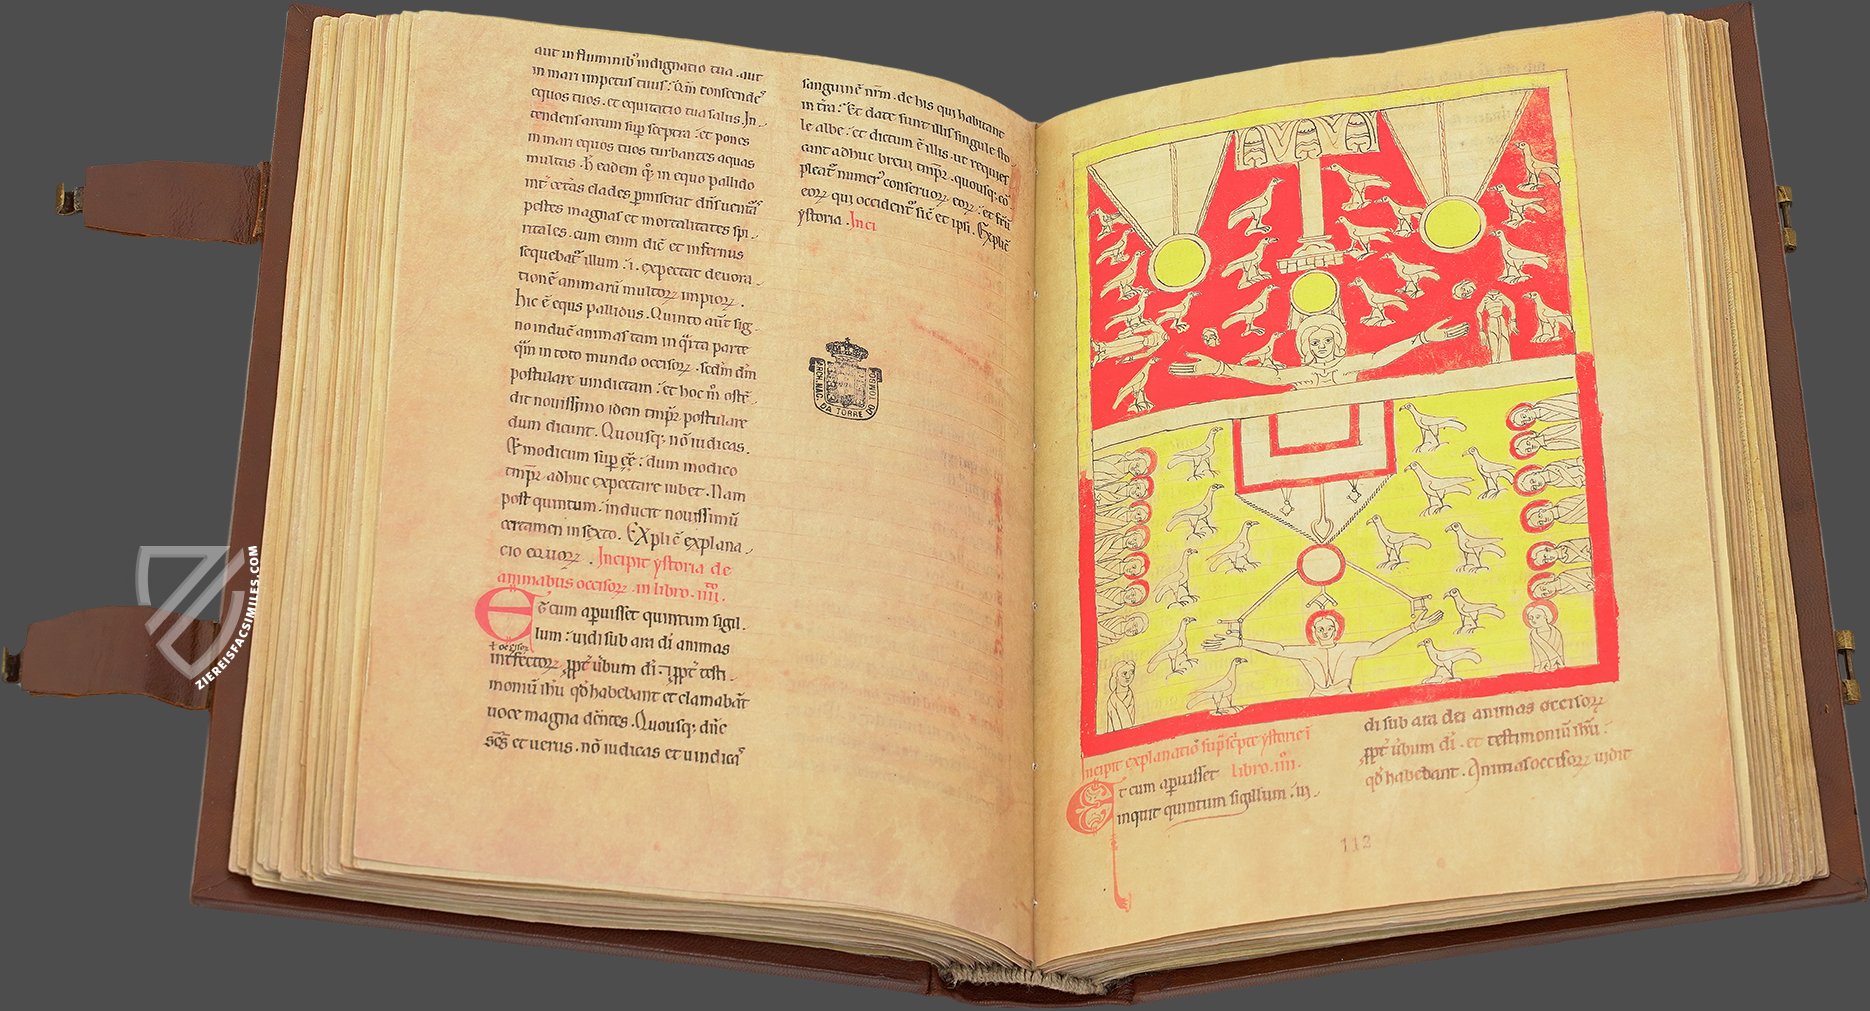 aut in fluminib' indignatio tua . aut
in mari impetus tuus : Qm̄ conscende᷒
equos tuos . et equitatio tua salus . In
tendens arcum sup̄ sceptra : et pones
in mari equos tuos turbantes aquas
multas . H̄ eadem q̄; in equo pallido
int᷒ cet̄as clades p̄miserat dn̄s uent᷒
pestes magnas et mortalitates spi
ritales . cum enim dic̄ et infernus
sequebat᷒ illum : .i. expectat deuora
tionē animarū multoꝝ impioꝝ .
hic ē equs pallidus . Quinto aūt sig
no induc̄ animas tam in q̄rta parte
q̄m in toto mundo occisoꝝ . secdm dm̄
postulare uindictam : et hoc m̄ ostē
dit nouissimo idem tmpr̄ postulare
dum dicunt . Quousq; nō iudicas .
Et modicum sup ēē : dum modico
tmpr̄ adhuc expectare iubet . Nam
post quintum : inducit nouissimū
certamen in sexto . Explic̄ explana
cio eq̄uoꝝ . Incipit ystoria de
animabus occisoꝝ . in libro . iiii.to
Et cum ap̄uisset quintum sigil
lum : uidi sub ara dī animas
+ occisoꝝ
int̄fectoꝝ ꝓpt̄ ūbum dī . ꝓpt̄ testi
moniū ihū qd̄ habebant et clamabāt
uoce magna dc̄ntes . Quousq; dn̄e
sc̄s et uerus . nō iudicas et uindica᷒
sanguinē nr̄m . de his qui habitant
in t̄ra : Et date sunt illis singule sto
le albe : et dictum ē illis . ut requies
cant adhuc breui tmpr̄ . quousq; cō
pleat̄ numer' conseruoꝝ eoꝝ : et fr̄ū
eoꝝ qui occident᷒ sic̄ et ipsi . Explic̄
ystoria . Inci
ARCH. NAC.
DA TORRE DO TOMBO
Incipit explanatiō sup̄sc̄pte ystorie ī
Et cum ap̄uisset libro . iiii.
inquit quintum sigillum : ui
di sub ara dei animas occisoꝝ
ꝓpt̄ ūbum dī . et testimoniū ihū .
qd̄ habebant . Animas occisoꝝ uidit
112
ZIEREISFACSIMILES.COM